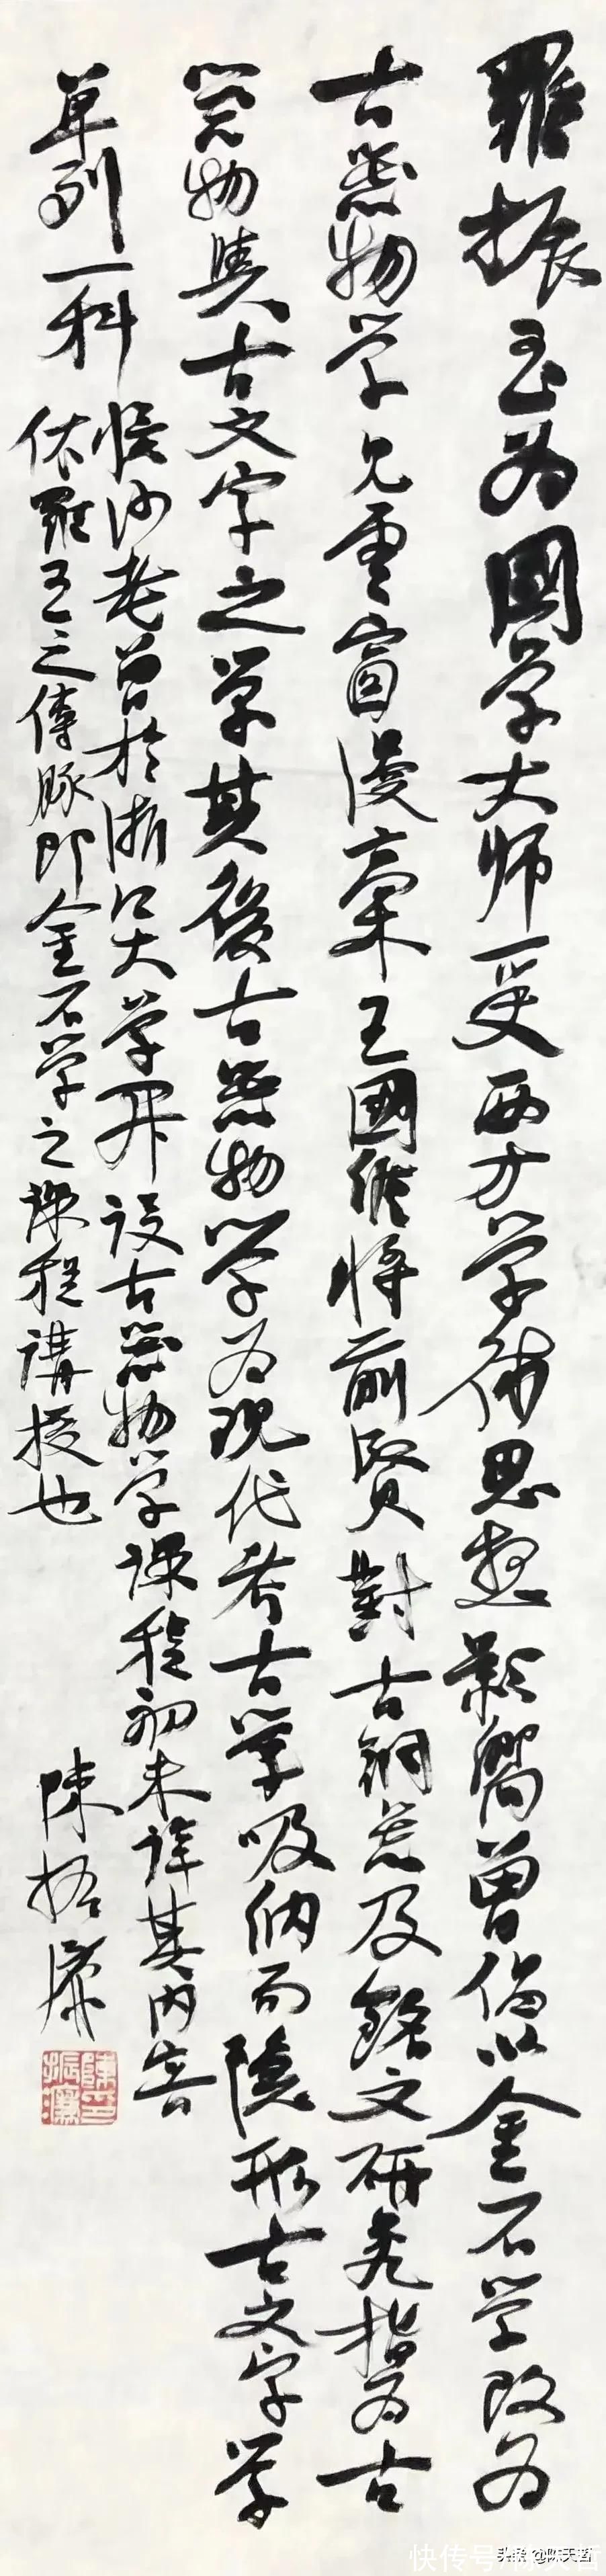 羅振玉为國学大师受西方学術思想影響曾倡以金石学改为
古器物学見雲窗漫稾王國维将前賢對古铜器及銘文研究指为古
器物與古文字之学其後古器物学为现代考古学吸纳而隐形古文字学
单列一科
悵沙老曾於浙江大学开设古器物学课程初未詳其内容
依羅王之傳脉即金石学之课程講授也
陳振濂
陳振濂
快传号
头条@陈天哲